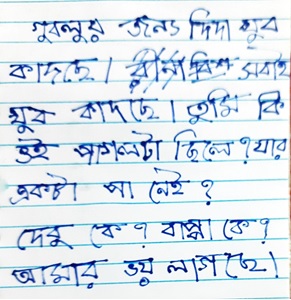 গুবলুর জন্য দিদা খুব
কাদছে। সবাই
খুব কাদছে। তুমি কি
ওই পাগলটা ছিলে? যার
একটা পা নেই?
দেবু কে? বাপ্পা কে?
আমার ভয় লাগছে।